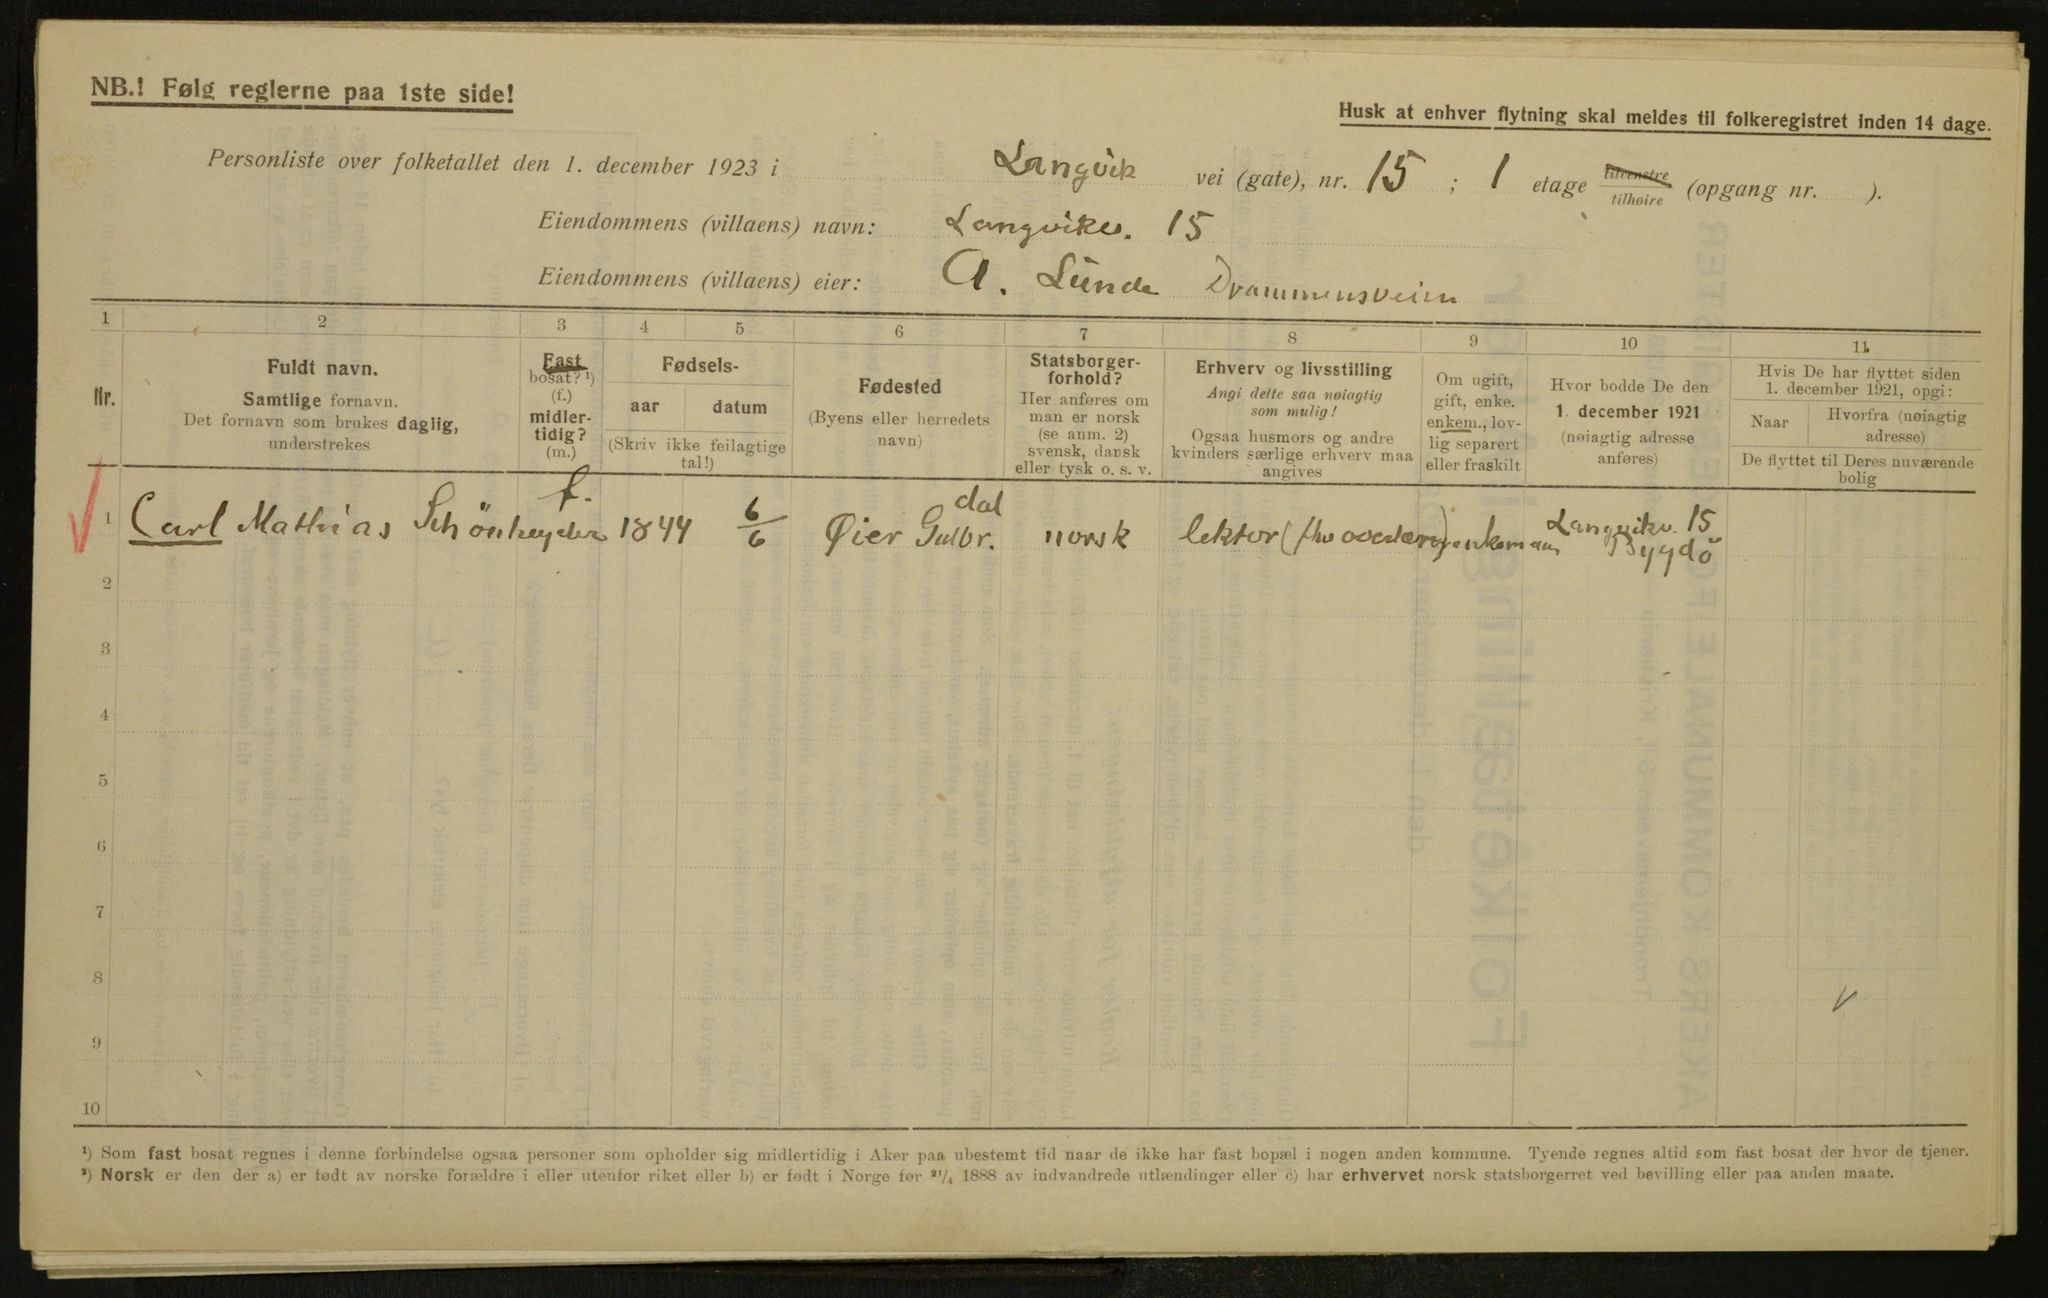 NB.! Følg reglerne paa 1ste side!
Husk at enhver flytning skal meldes til folkeregistret inden 14 dage.
Personliste over folketallet den 1. december 1923 i Langvik vei (gate), nr. 15 ; 1 etage tilvenstre tilhøire (opgang nr. ).
Eiendommens (villaens) navn: Langvikv. 15
Eiendommens (villaens) eier: A. Lunde Drammensveien
1 2 3 4 5 6 7 8 9 10 11
Nr.
Fuldt navn.
Samtlige fornavn.
Det fornavn som brukes daglig,
understrekes
Fast
bosat? ¹)
(f.)
midler-
tidig?
(m.)
Fødsels-
aar datum
(Skriv ikke feilagtige
tal!)
Fødested
(Byens eller herredets
navn)
Statsborger-
forhold?
Her anføres om
man er norsk
(se anm. 2)
svensk, dansk
eller tysk o. s. v.
Erhverv og livsstilling
Angi dette saa nøiagtig
som mulig!
Ogsaa husmors og andre
kvinders særlige erhverv maa
angives
Om ugift,
gift, enke.
enkem., lov-
lig separert
eller fraskilt
Hvor bodde De den
1. december 1921
(nøiagtig adresse
anføres)
Hvis De har flyttet siden
1. december 1921, opgi:
Naar
Hvorfra (nøiagtig
adresse)
De flyttet til Deres nuværende
bolig
1 Carl Mathias Schönheyder f. 1844 6/6 Øier Gulbr. dal norsk lektor ( enkemann Langvikv. 15
Bygdö
2
3
4
5
6
7
8
9
10
¹) Som fast bosat regnes i denne forbindelse ogsaa personer som opholder sig midlertidig i Aker paa ubestemt tid naar de ikke har fast bopæl i nogen anden kommune. Tyende regnes altid som fast bosat der hvor de tjener.
²) Norsk er den der a) er født av norske forældre i eller utenfor riket eller b) er født i Norge før 21/4 1888 av indvandrede utlændinger eller c) har erhvervet norsk statsborgerret ved bevilling eller paa anden maate.